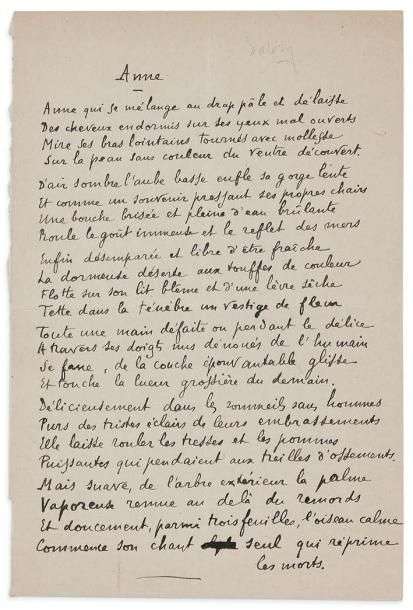 Anne
Anne qui se mélange au drap pâle et délaisse
Des cheveux endormis sur ses yeux mal ouverts
Mire ses bras lointains tournés avec mollesse
Sur la peau sans couleur du ventre découvert.
D'air sombre l'aube basse enfle sa gorge lente
Et comme un souvenir pressant ses propres chairs
Une bouche brisée et pleine d'eau brûlante
Roule le goût immense et le reflet des mers
Enfin désemparée et libre d'être fraîche
La dormeuse déserte aux touffes de couleur
Flotte sur son lit blême et d'une lèvre sèche
Tette dans la ténèbre un vestige de fleur
Toute une main défaite ou perdant le délice
A travers ses doigts nus dénoués de l'humain
Se fane, de la couche épouvantable glisse
Et touche la lueur grossière du demain.
Délicieusement dans les sommeils sans hommes
Purs des tristes éclairs de leurs embrassements
Elle laisse rouler les tresses et les pommes
Puissantes qui pendaient aux treilles d'ossements.
Mais suave, de l'arbre extérieur la palme
Vaporeuse remue au delà du remords
Et doucement, parmi trois feuilles, l'oiseau calme
Commence son chant seul qui réprime
les morts.